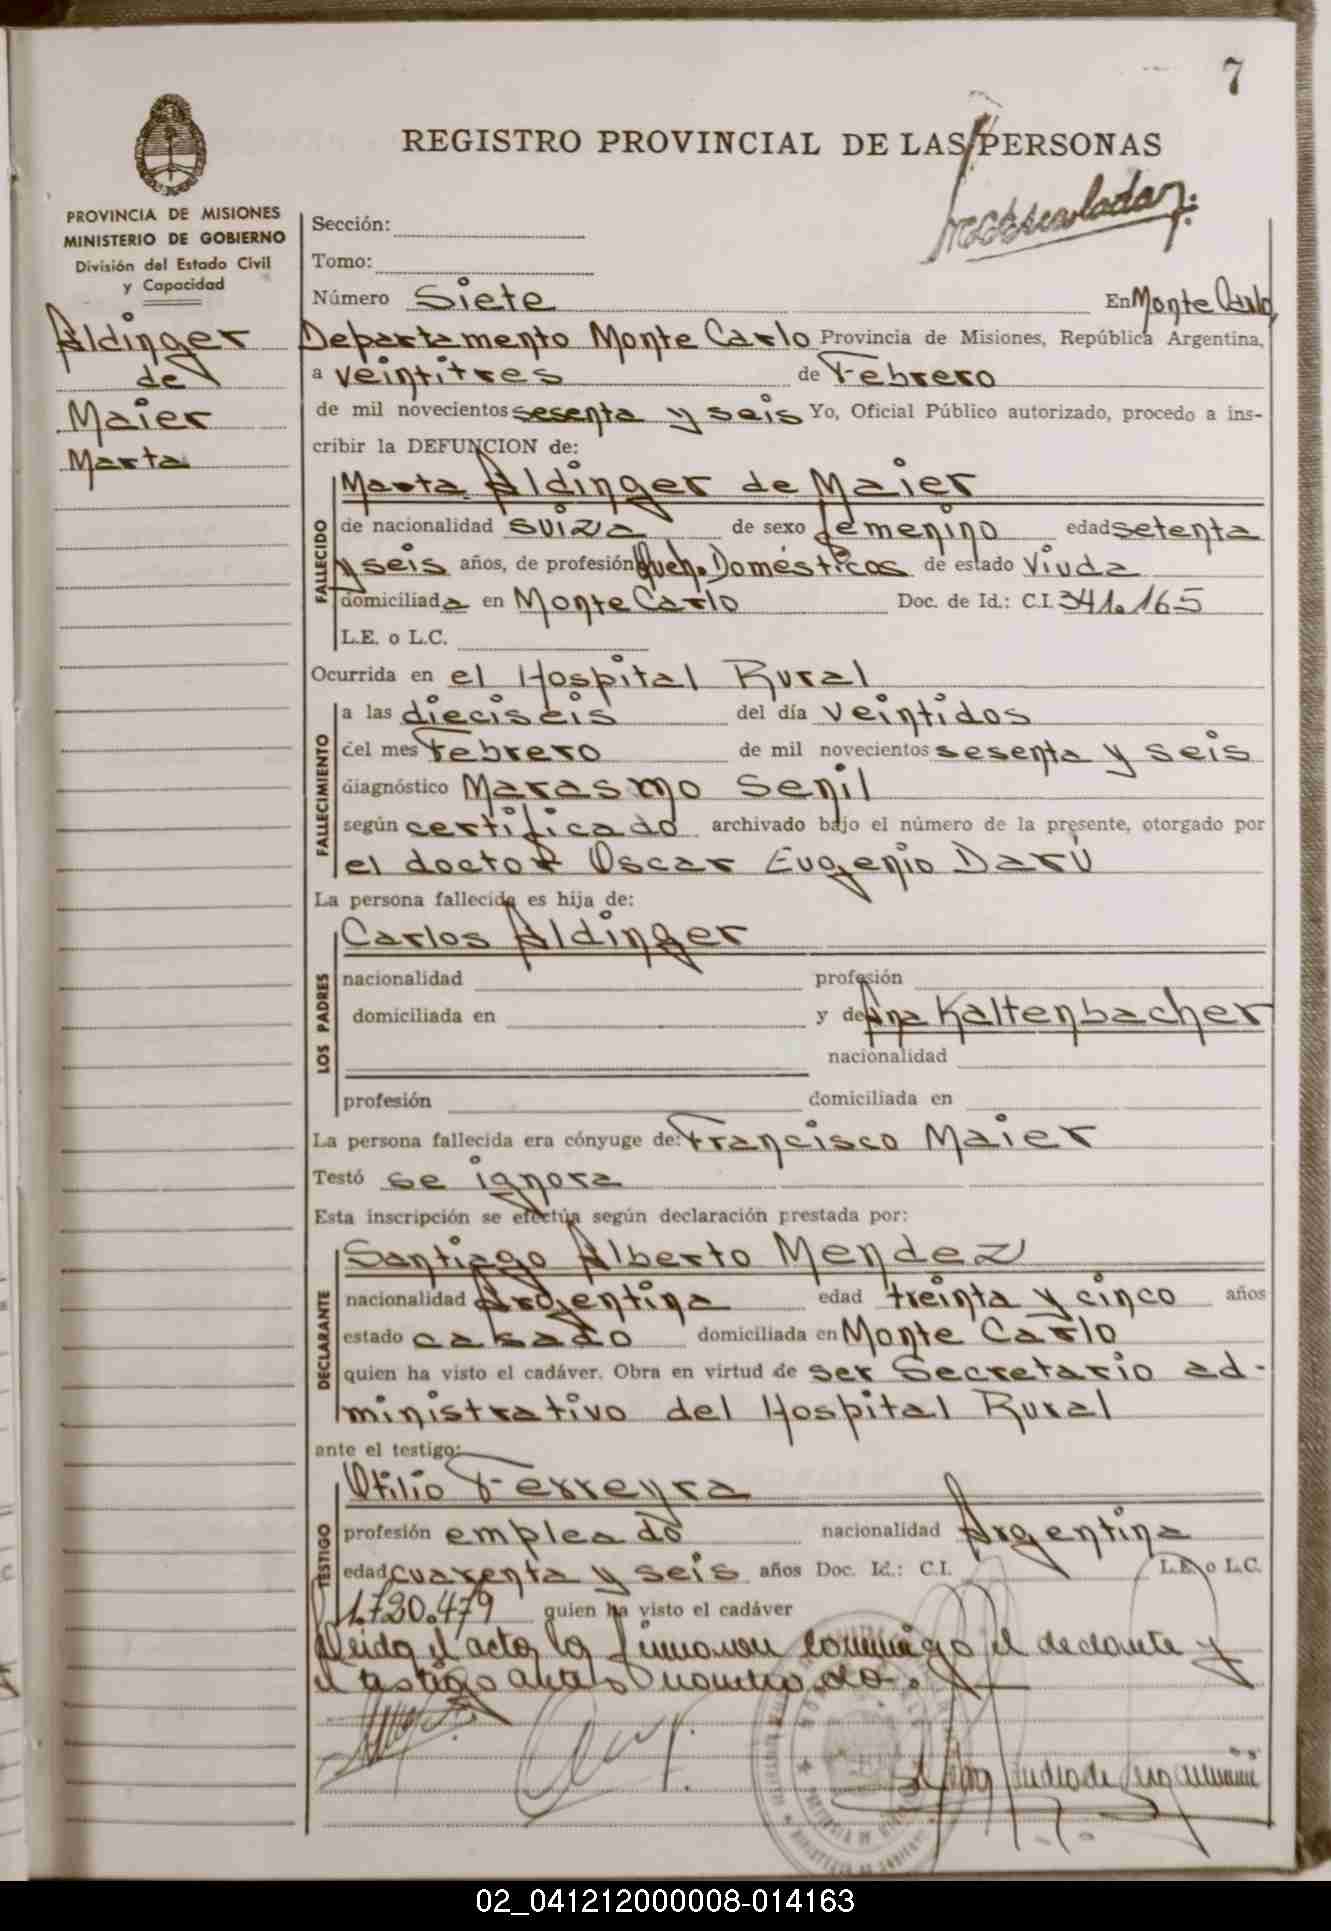 7
REGISTRO PROVINCIAL DE LAS PERSONAS
PROVINCIA DE MISIONES
MINISTERIO DE GOBIERNO
División del Estado Civil
y Capacidad
Aldinger
de
Maier
Marta
Sección:
Tomo:
Número Siete En Monte Carlo,
Departamento Monte Carlo Provincia de Misiones, República Argentina,
a veintitres de Febrero
de mil novecientos sesenta y seis Yo, Oficial Público autorizado, procedo a ins-
cribir la DEFUNCION de:
FALLECIDO
Marta Aldinger de Maier
de nacionalidad suiza de sexo femenino edad setenta
y seis años, de profesión Queh. Domésticos de estado Viuda
domiciliada en Monte Carlo Doc. de Id.: C.I. 341.165
L.E. o L.C.
Ocurrida en el Hospital Rural
FALLECIMIENTO
a las dieciseis del día veintidos
del mes Febrero de mil novecientos sesenta y seis
diagnóstico Marasmo Senil
según certificado archivado bajo el número de la presente, otorgado por
el doctor Oscar Eugenio Darú
La persona fallecida es hija de:
LOS PADRES
Carlos Aldinger
nacionalidad profesión
domiciliada en y de Ana Kaltenbacher
nacionalidad
profesión domiciliada en
La persona fallecida era cónyuge de: Francisco Maier
Testó se ignora
Esta inscripción se efectúa según declaración prestada por:
DECLARANTE
Santiago Alberto Mendez
nacionalidad Argentina edad treinta y cinco años
estado casado domiciliada en Monte Carlo
quien ha visto el cadáver. Obra en virtud de ser Secretario ad-
ministrativo del Hospital Rural
ante el testigo:
TESTIGO
Otilio Ferreyra
profesión empleado nacionalidad Argentina
edad cuarenta y seis años Doc. Id.: C.I. L.E. o L.C.
1.720.479 quien ha visto el cadáver
Leida el acta la firmaron conmigo el declante y
el testigo antes nombrado.
02_041212000008-014163